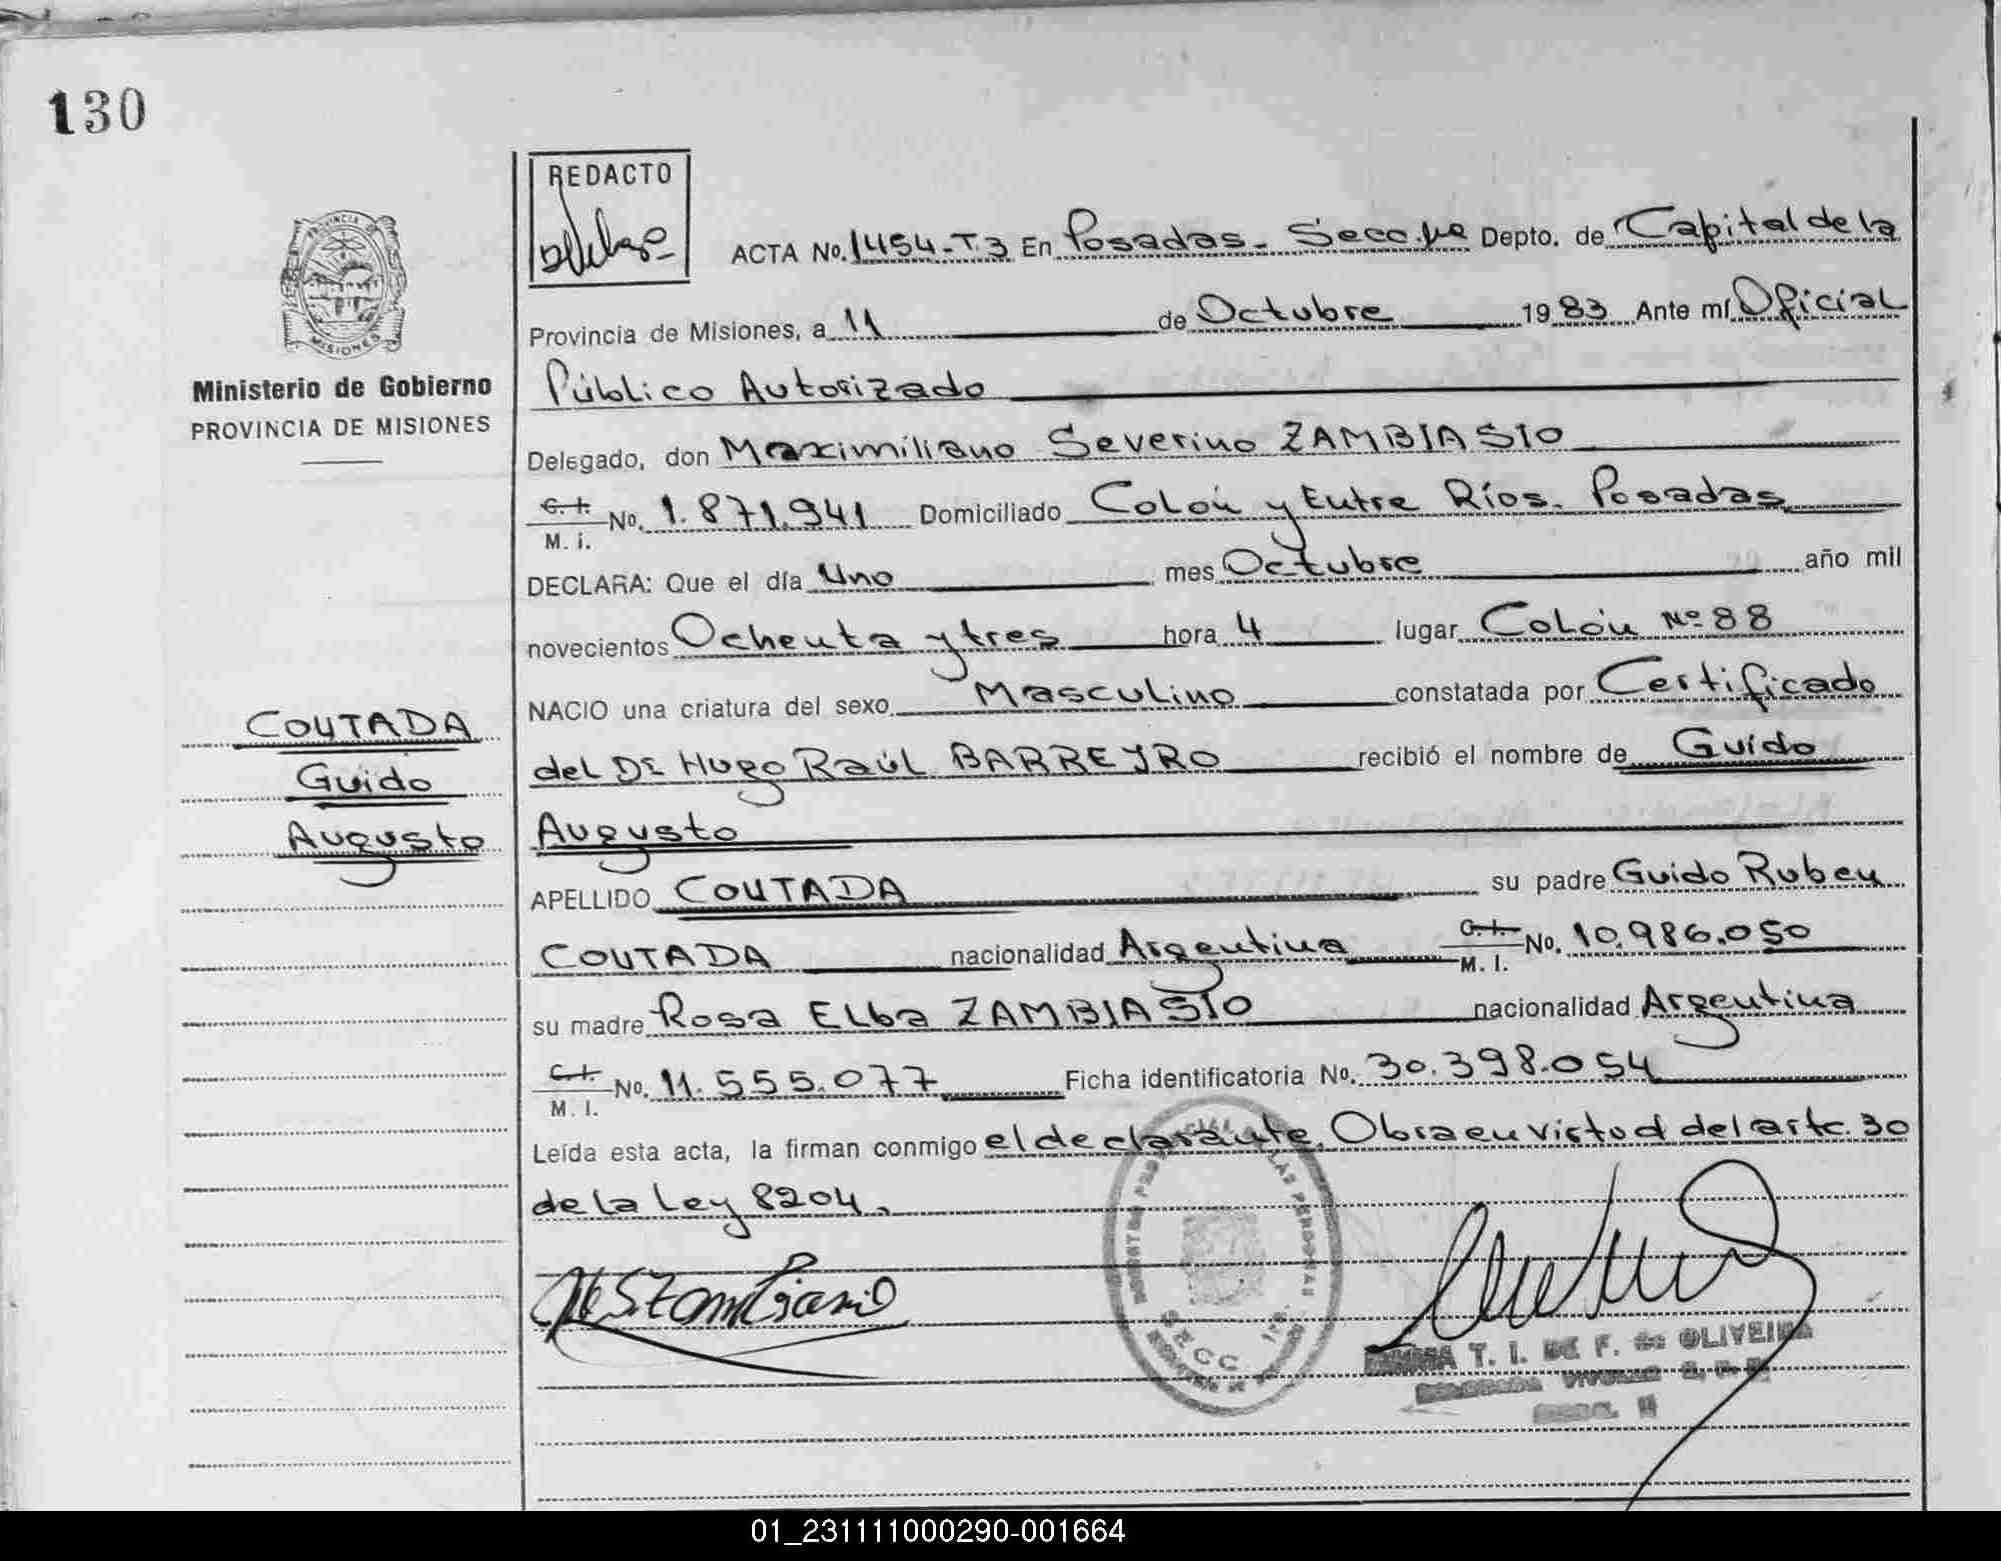 130
REDACTO
ACTA No. 1454-T.3 En Posadas - Secc. 1ra Depto. de Capital de la
PROVINCIA
MISIONES
Provincia de Misiones, a 11 de Octubre 1983 Ante mí Oficial
Ministerio de Gobierno
Público Autorizado
PROVINCIA DE MISIONES
Delegado, don Maximiliano Severino ZAMBIASIO
C. I. M. i. No. 1.871.941 Domiciliado Colón y Entre Ríos. Posadas
DECLARA: Que el día Uno mes Octubre año mil
novecientos Ochenta y tres hora 4 lugar Colón Nº 88
NACIO una criatura del sexo Masculino constatada por Certificado
COUTADA
del Dr Hugo Raúl BARREYRO recibió el nombre de Guido
Guido
Augusto
Augusto
APELLIDO COUTADA su padre Guido Ruben
COUTADA nacionalidad Argentina C. I. M. I. No. 10.986.050
su madre Rosa Elba ZAMBIASIO nacionalidad Argentina
C. I. M. I. No. 11.555.077 Ficha identificatoria No. 30.398.054
Leída esta acta, la firman conmigo el declarante. Obra en virtud del artc. 30
de la Ley 8204.
LAS PERSONAS
SECC. 1ra.
T. I. DE F. de OLIVEIRA
01_231111000290-001664